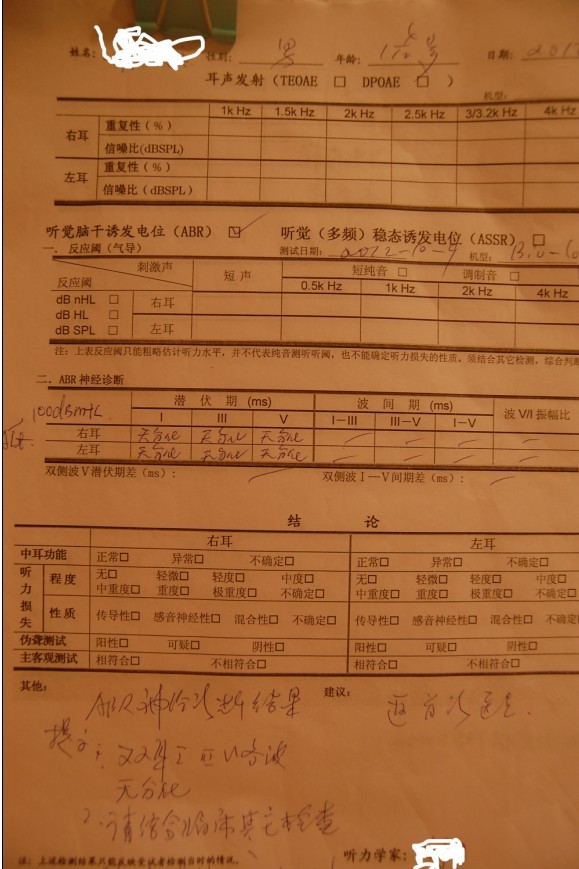 姓名: 性别: 男 年龄: 1岁 日期: 201
耳声发射（TEOAE □ DPOAE □ ）
机型:
1k Hz 1.5k Hz 2k Hz 2.5k Hz 3/3.2k Hz 4k Hz
右耳 重复性（%）
信噪比(dBSPL)
左耳 重复性（%）
信噪比（dBSPL）
听觉脑干诱发电位（ABR）☑ 听觉（多频）稳态诱发电位（ASSR）□
一．反应阈（气导） 测试日期: 2012-10-9 机型:
刺激声 短声 短纯音 □ 调制音 □
反应阈 0.5k Hz 1k Hz 2k Hz 4k Hz
dB nHL □ 右耳
dB HL □
dB SPL □ 左耳
注：上表反应阈只能粗略估计听力水平，并不代表纯音测听听阈，也不能确定听力损失的性质。须结合其它检测，综合判断
二．ABR神经诊断
100dBnHL 潜伏期 (ms) 波间期 (ms) 波 V/I 振幅比
I III V I－III III－V I－V
右耳 无分化 无分化 无分化 — — —
左耳 无分化 无分化 无分化 — — —
双侧波V潜伏期差（ms）: 双侧波I—V间期差（ms）:
结 论
右耳 左耳
中耳功能 正常□ 异常□ 不确定□ 正常□ 异常□ 不确定□
听力损失 程度 无□ 轻微□ 轻度□ 中度□ 无□ 轻微□ 轻度□ 中度□
中重度□ 重度□ 极重度□ 不确定□ 中重度□ 重度□ 极重度□ 不确定□
性质 传导性□ 感音神经性□ 混合性□ 不确定□ 传导性□ 感音神经性□ 混合性□ 不确定□
伪聋测试 阳性□ 可疑□ 阴性□ 阳性□ 可疑□ 阴性□
主客观测试 相符合□ 不相符合□ 相符合□ 不相符合□
其他: ABR神经诊断结果 建议: 返首诊医生.
提示: 1. 双耳 I III V 各波
无分化
2. 请结合临床其它检查
听力学家:
注：上述检测结果只能反映受试者检测当时的情况。